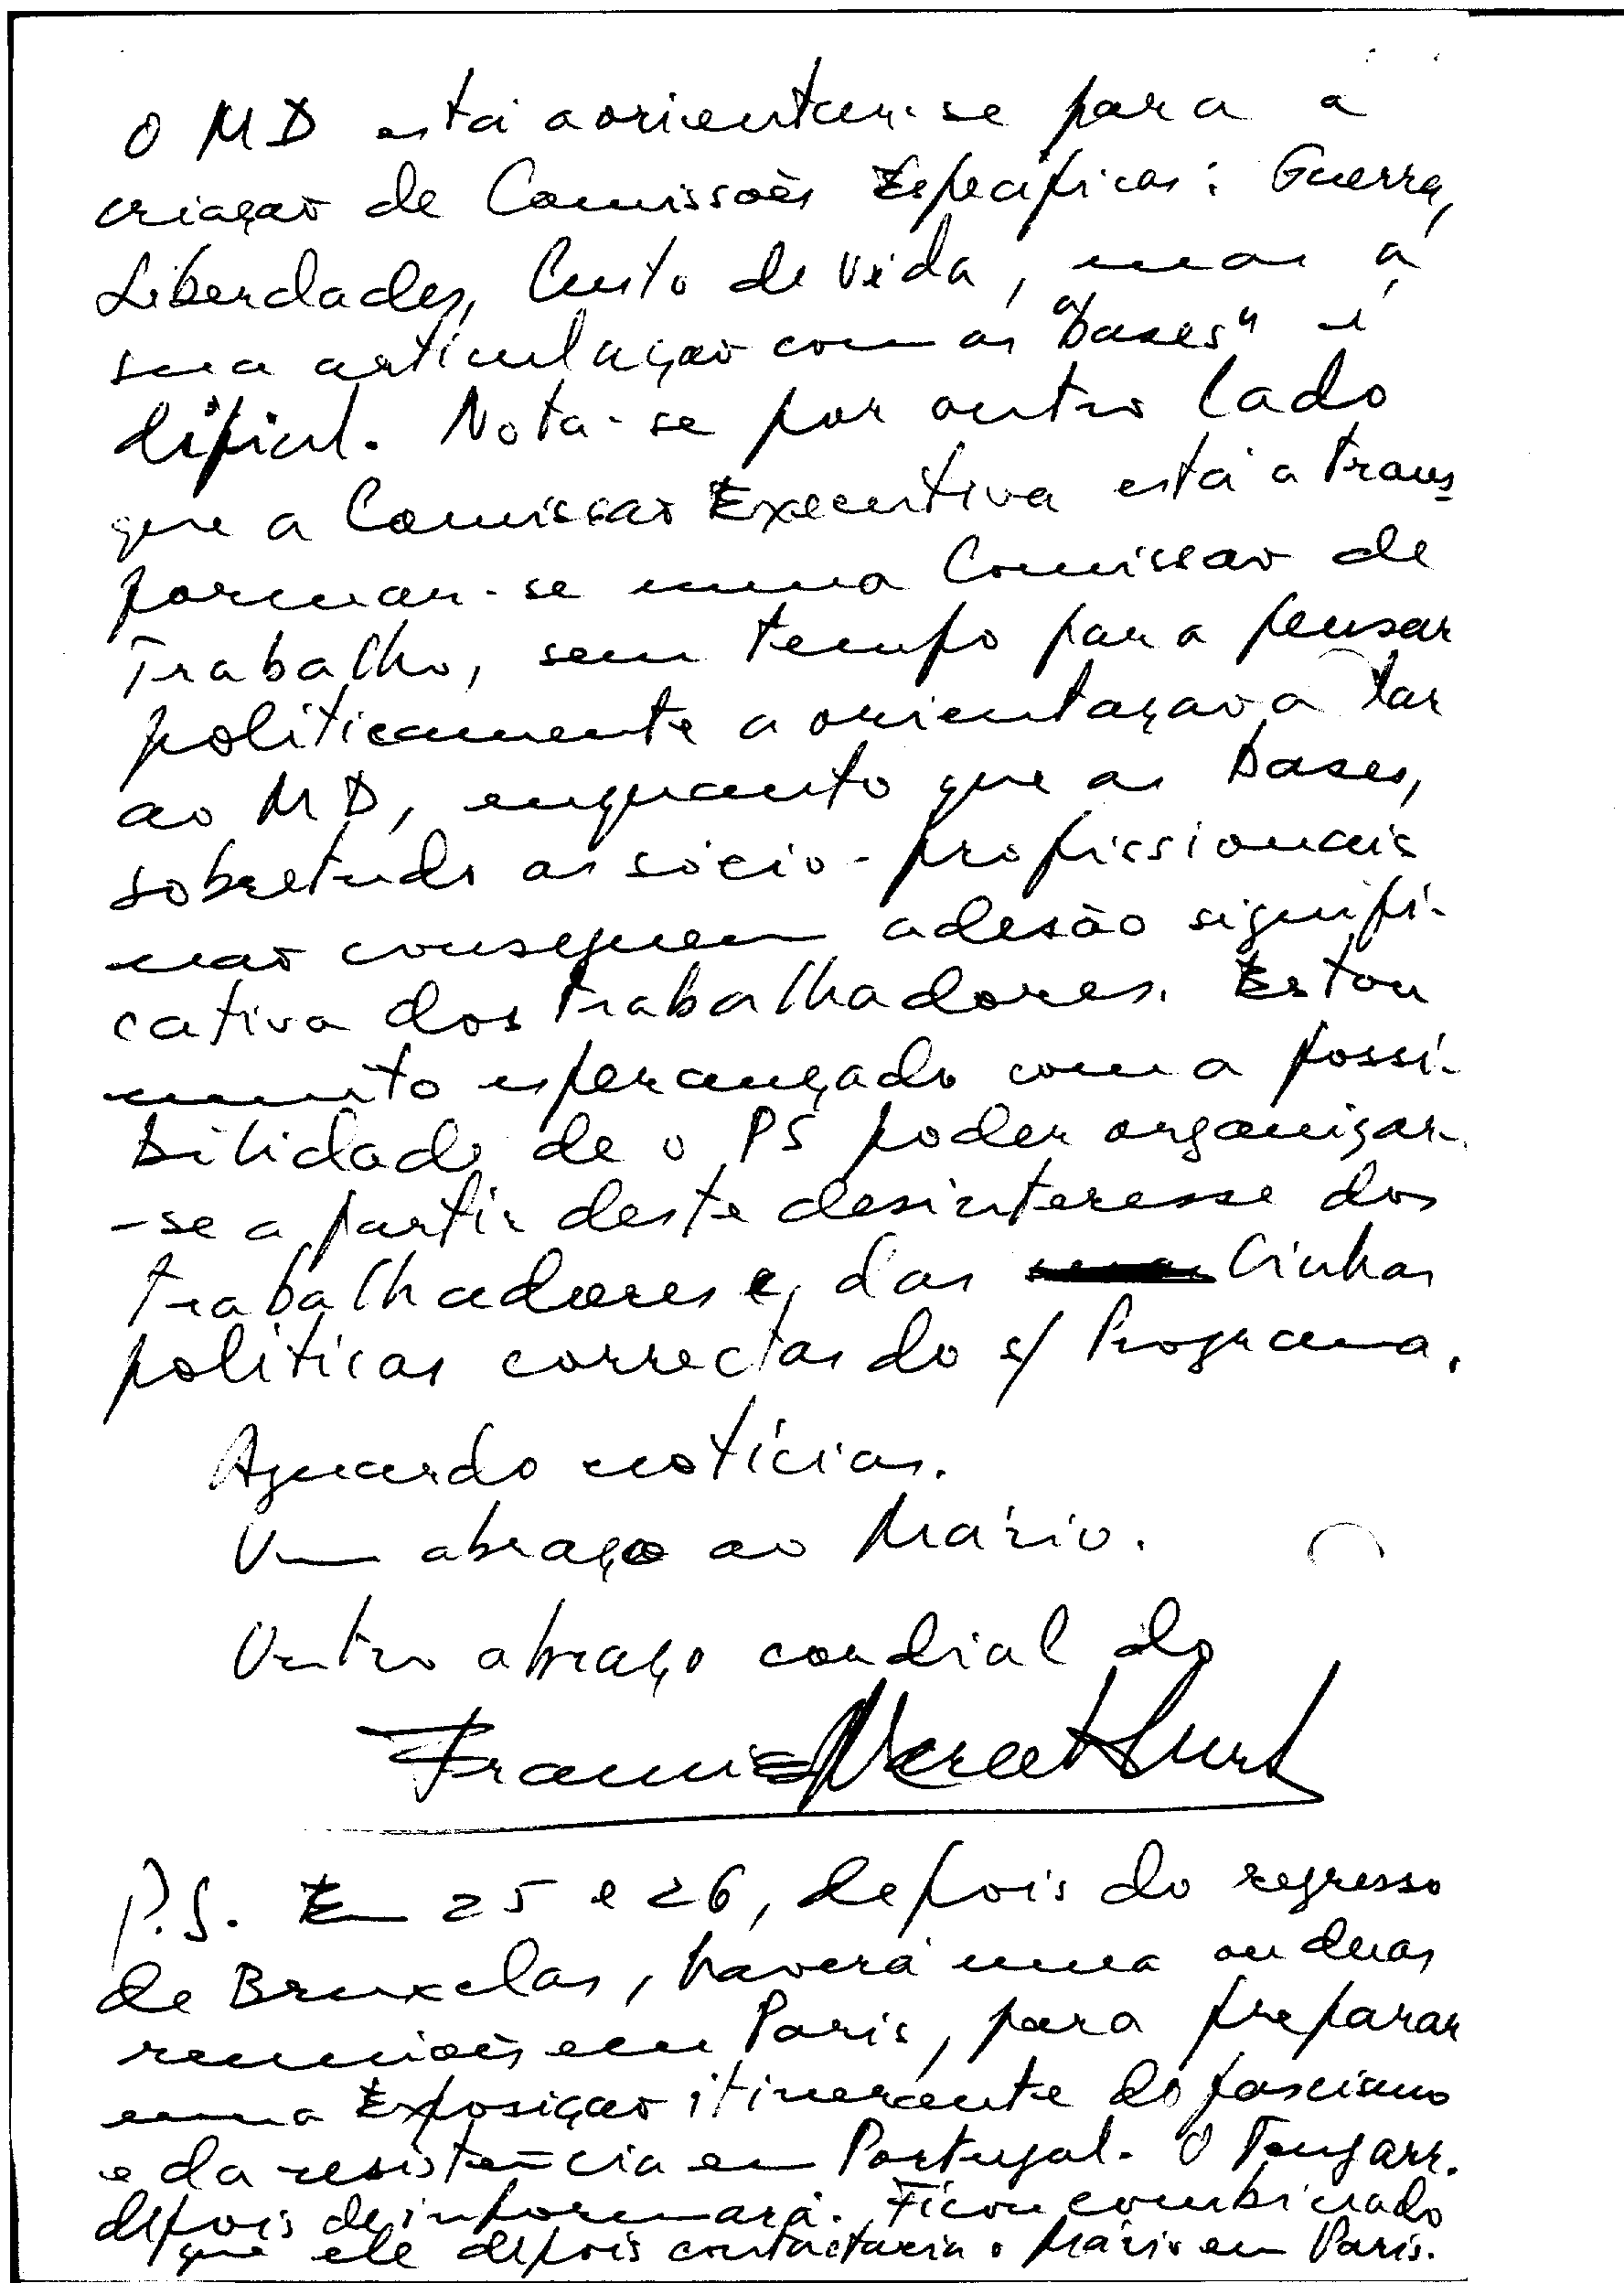 O MD está a orientar-se para a
criação de Comissões Específicas: Guerra,
Liberdades, Custo de Vida, mas a
sua articulação com as "bases" é
difícil. Nota-se por outro lado
que a Comissão Executiva está a trans
formar-se numa Comissão de
Trabalho, sem tempo para pensar
politicamente a orientação a dar
ao MD, enquanto que as bases,
sobretudo as sócio-profissionais
não conseguem adesão signifi-
cativa dos trabalhadores. Estou
muito esperançado com a possi-
bilidade de o PS poder organizar-
-se a partir deste desinteresse dos
trabalhadores e, das linhas
políticas correctas do s/ Programa.
Aguardo notícias.
Um abraço ao Mário.
Outro abraço cordial do
P.S. Em 25 e 26, depois do regresso
de Bruxelas, haverá uma ou duas
reuniões em Paris, para preparar
uma Exposição itinerante do fascismo
e da resistência em Portugal. O Tengarr.
depois informará. Ficou combinado
que ele depois contactaria o Mário em Paris.